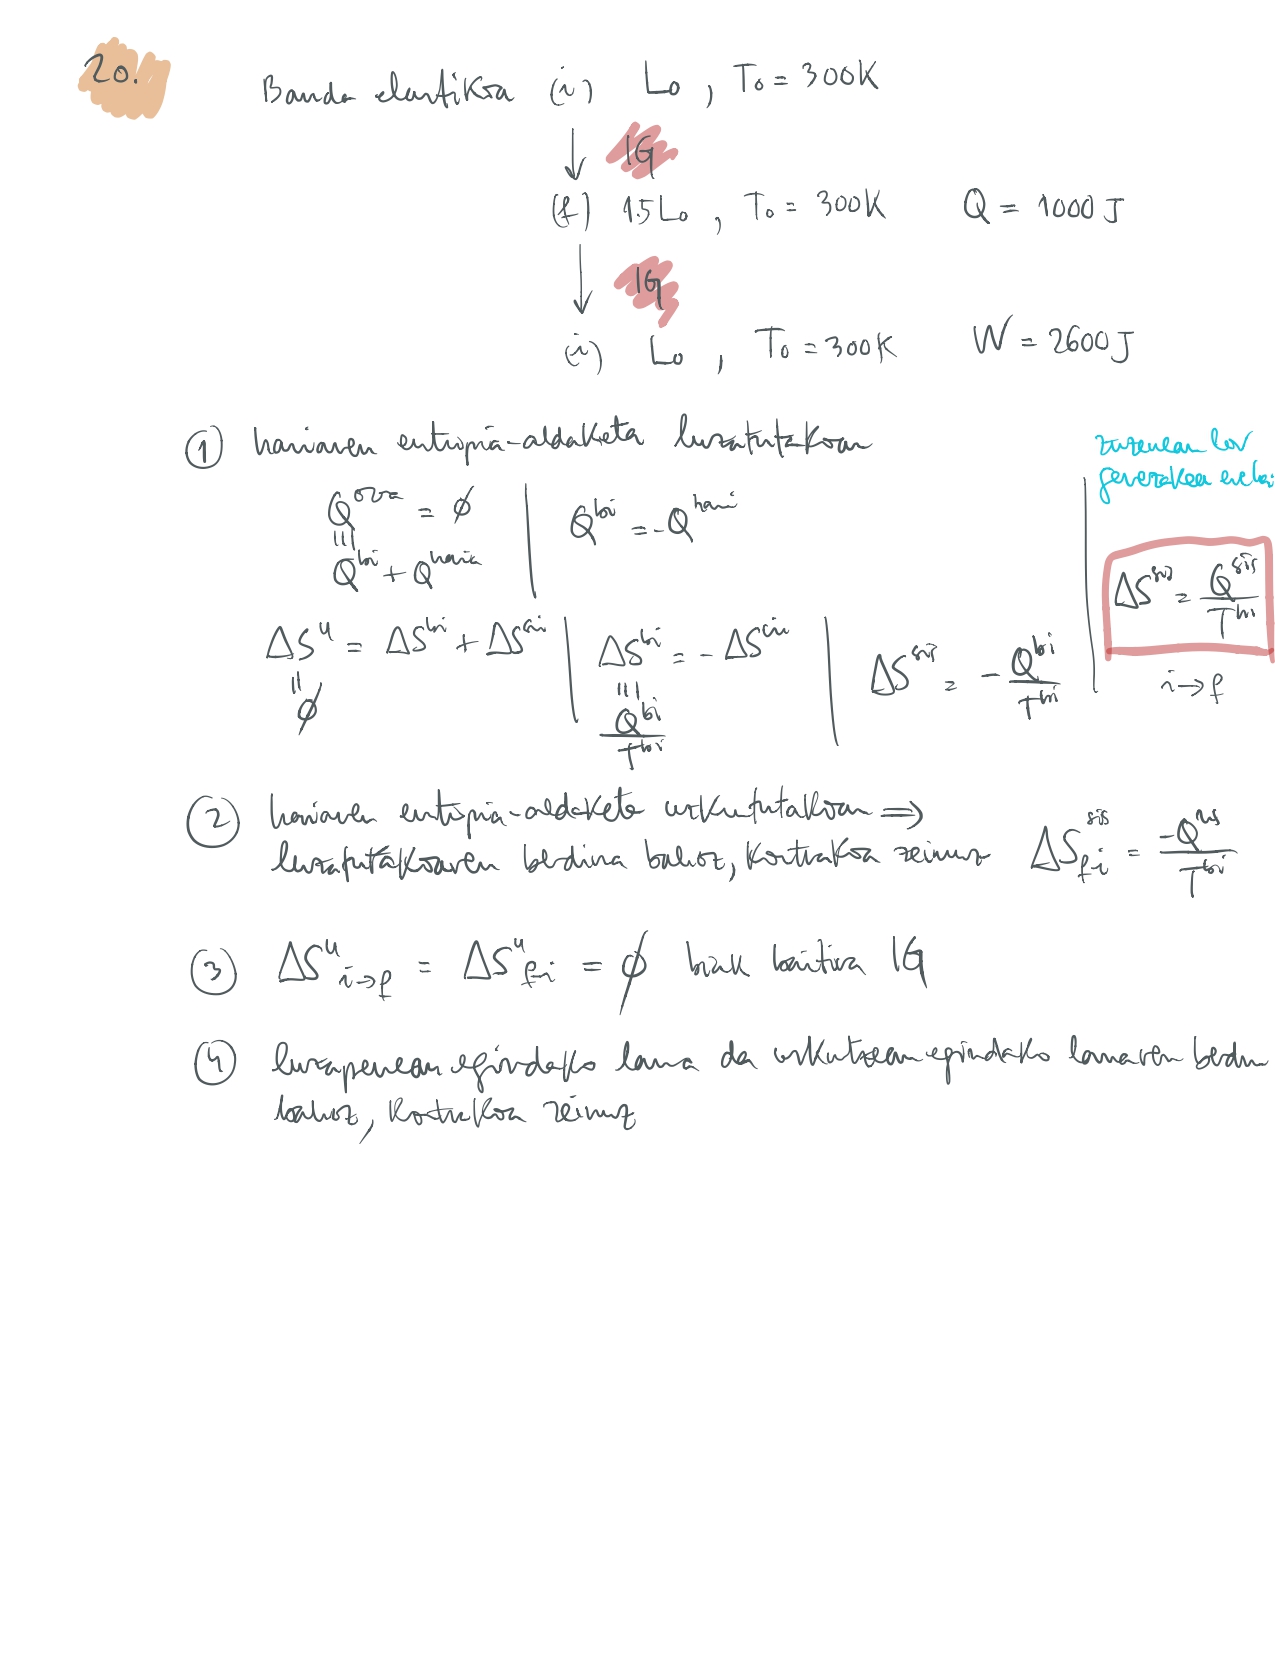 20.
Banda elastikoa (i) L₀ , T₀ = 300K
↓ IG
(f) 1.5 L₀ , T₀ = 300K Q = 1000 J
↓ IG
(i) L₀ , T₀ = 300K W = 2600 J
① hariaren entropia-aldaketa luzatutakoan
zuzenean lor
Q^oroa = ∅ | Q^bi = -Q^hari
Q^bi + Q^haria
ΔS^sis = Q^sis / T^bi
i→f
ΔS^u = ΔS^bi + ΔS^ai | ΔS^bi = - ΔS^ai | ΔS^sis = - Q^bi / T^bi
= ∅
≡ Q^bi / T^bi
② hariaren entropia-aldaketa uzkurtutakoan ⇒
luzatutakoaren berdina balioz, kontrakoa zeinuz ΔS^sis_fi = -Q^sis / T^bi
③ ΔS^u_i→f = ΔS^u_f→i = ∅ biak baitira IG
④ luzapenean egindako lana da uzkurtzean egindako lanaren berdin
balioz, kontrakoa zeinuz